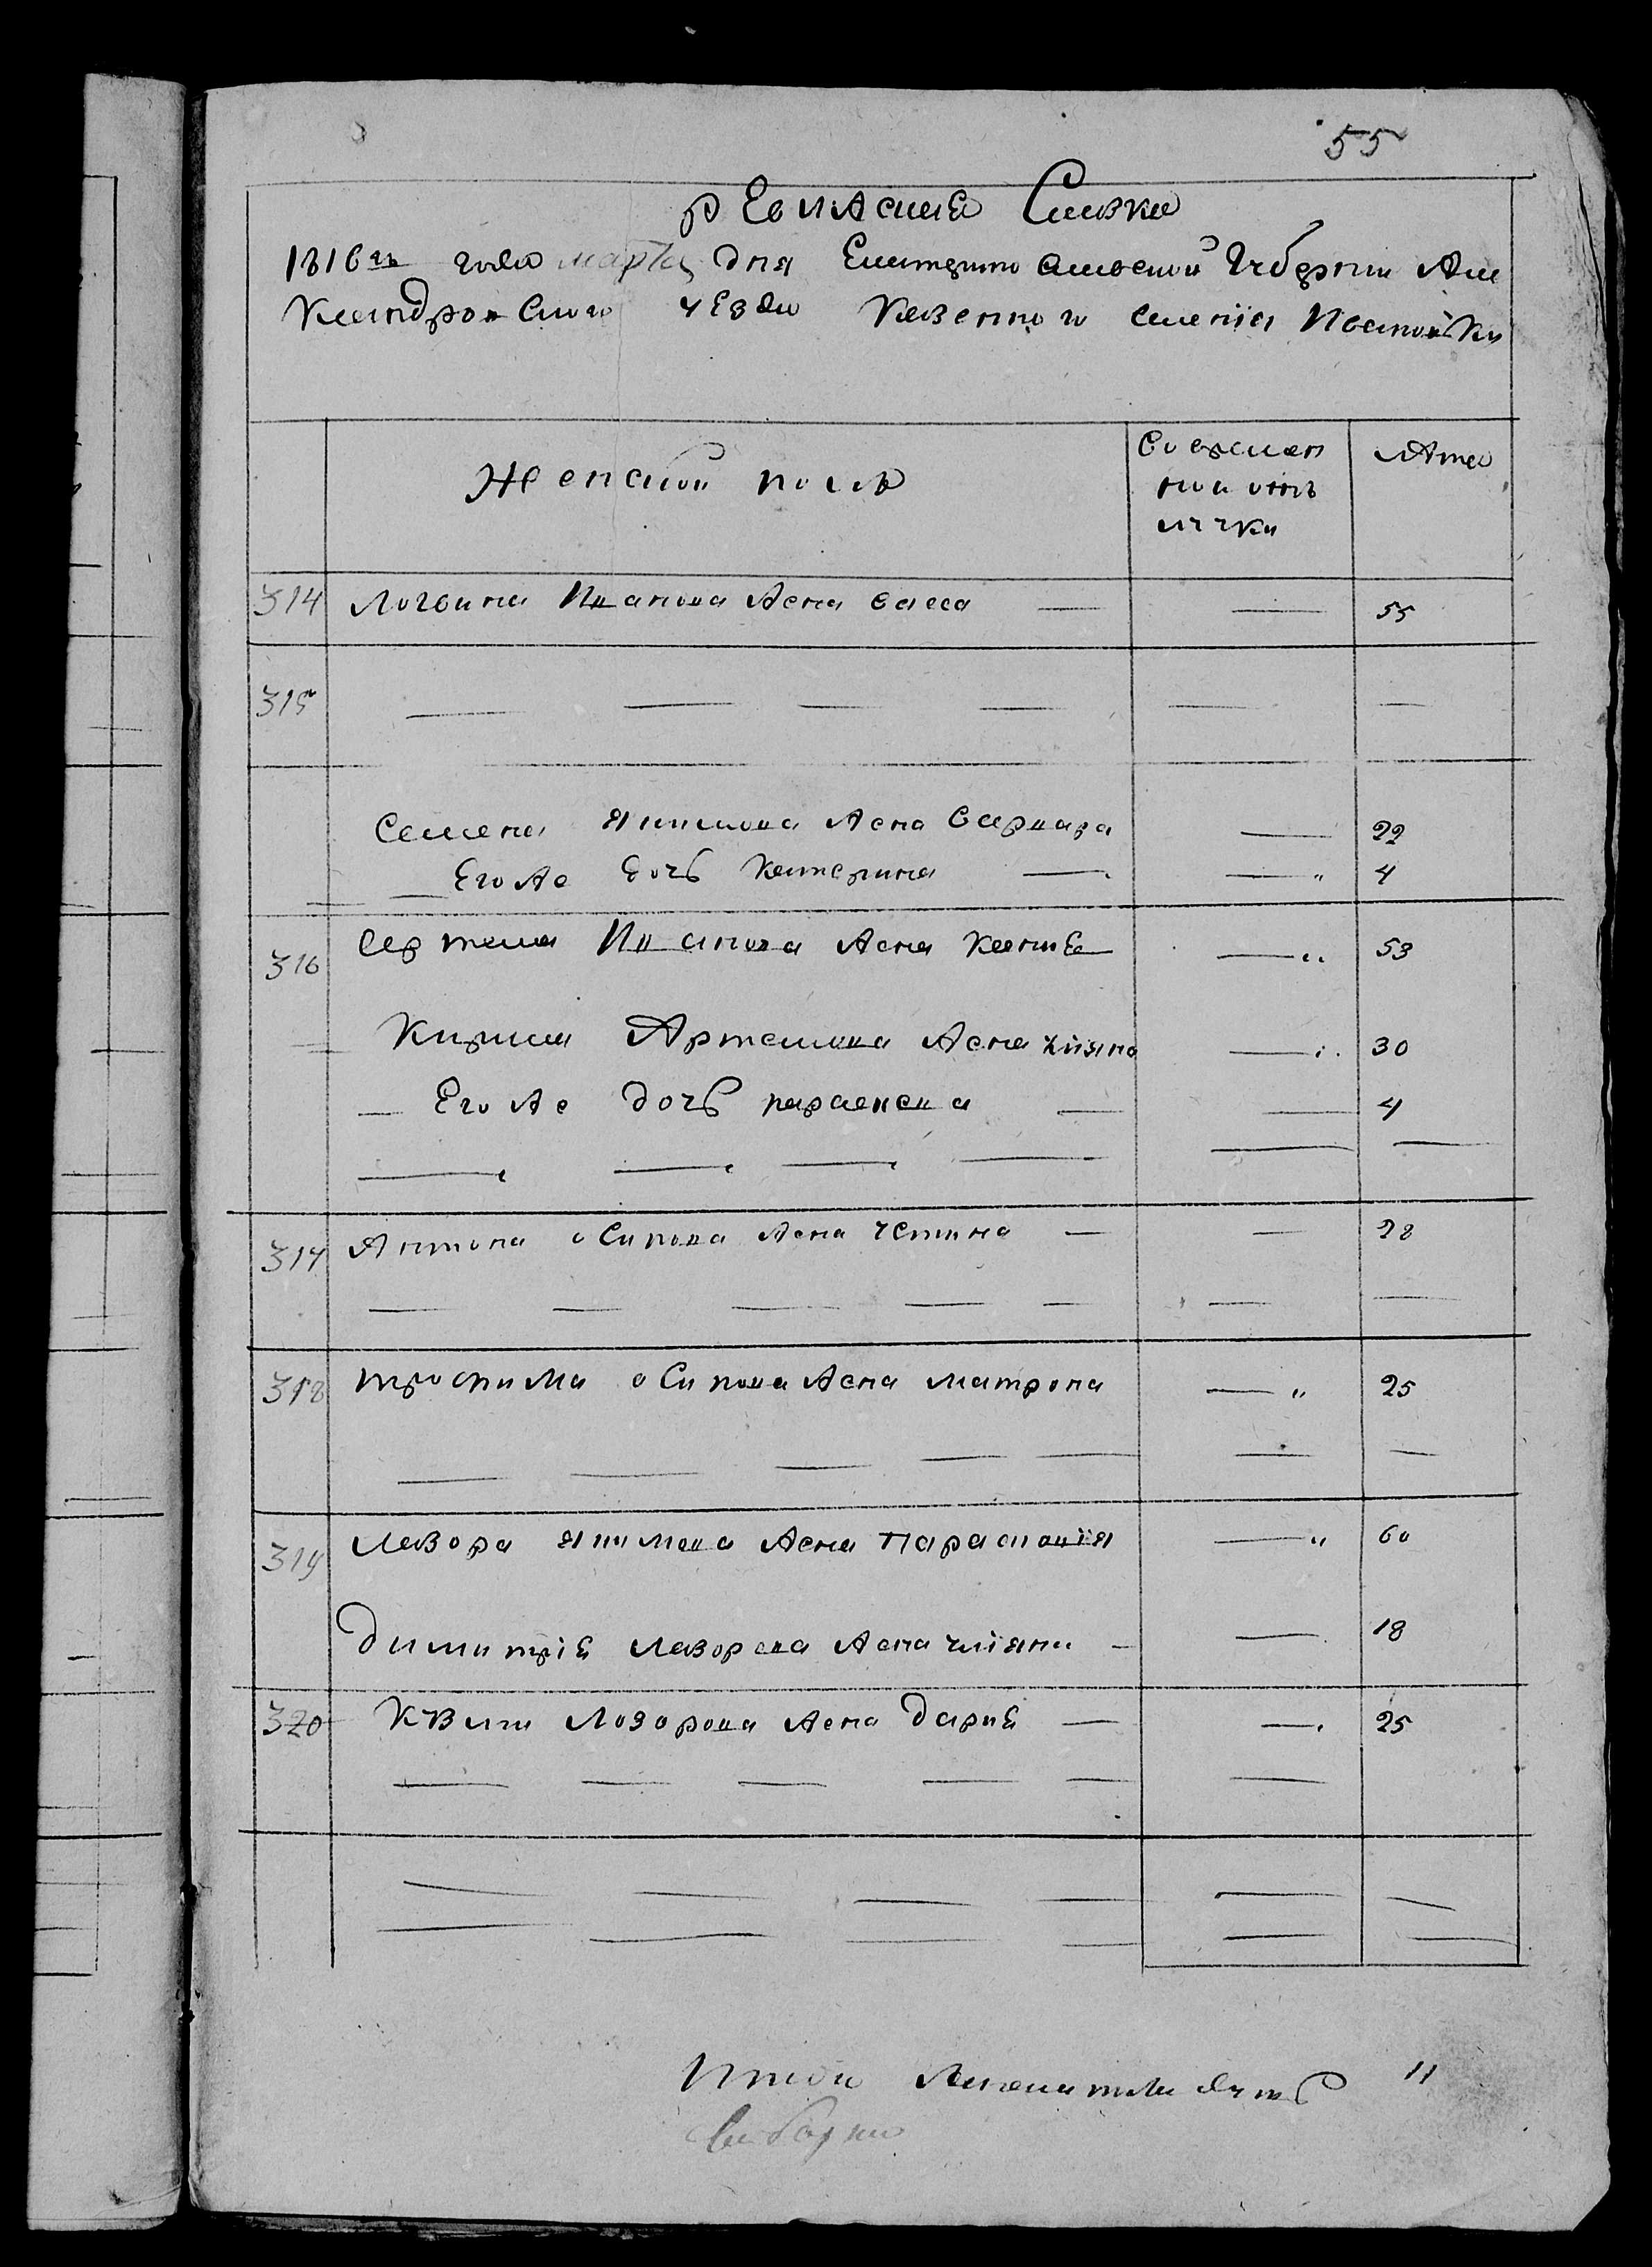 55
ревижская Скаска
1816го года марта дня Екатерино славской Губернии Але
Ксандров Скаго уезда Казенного селенія Ивановки
Женской полъ
Во времен
ной отъ
лучки
Лета
314 Логвина Иванова жена васса — — 55
315 — — — — — —
Семена Якимова жена варвара — 22
Его же дочь Катерина — — 4
316 Артема Иванова жена Ксение — 53
Кирила Артемова жена улияна — 30
— Его же дочь параскева — — 4
— — — — — —
317 Антона осипова жена устина — — 28
— — — — — — —
318 трофима осипова жена матрона — 25
— — — — — — —
319 Лазора якимова жена Парасковия — 60
димитрiе Лазорева жена улияна — — 18
320 Кузми Лазорова жена дарие — — 25
— — — — — —
— — — — — —
— — — — — —
Итого женска душъ 11